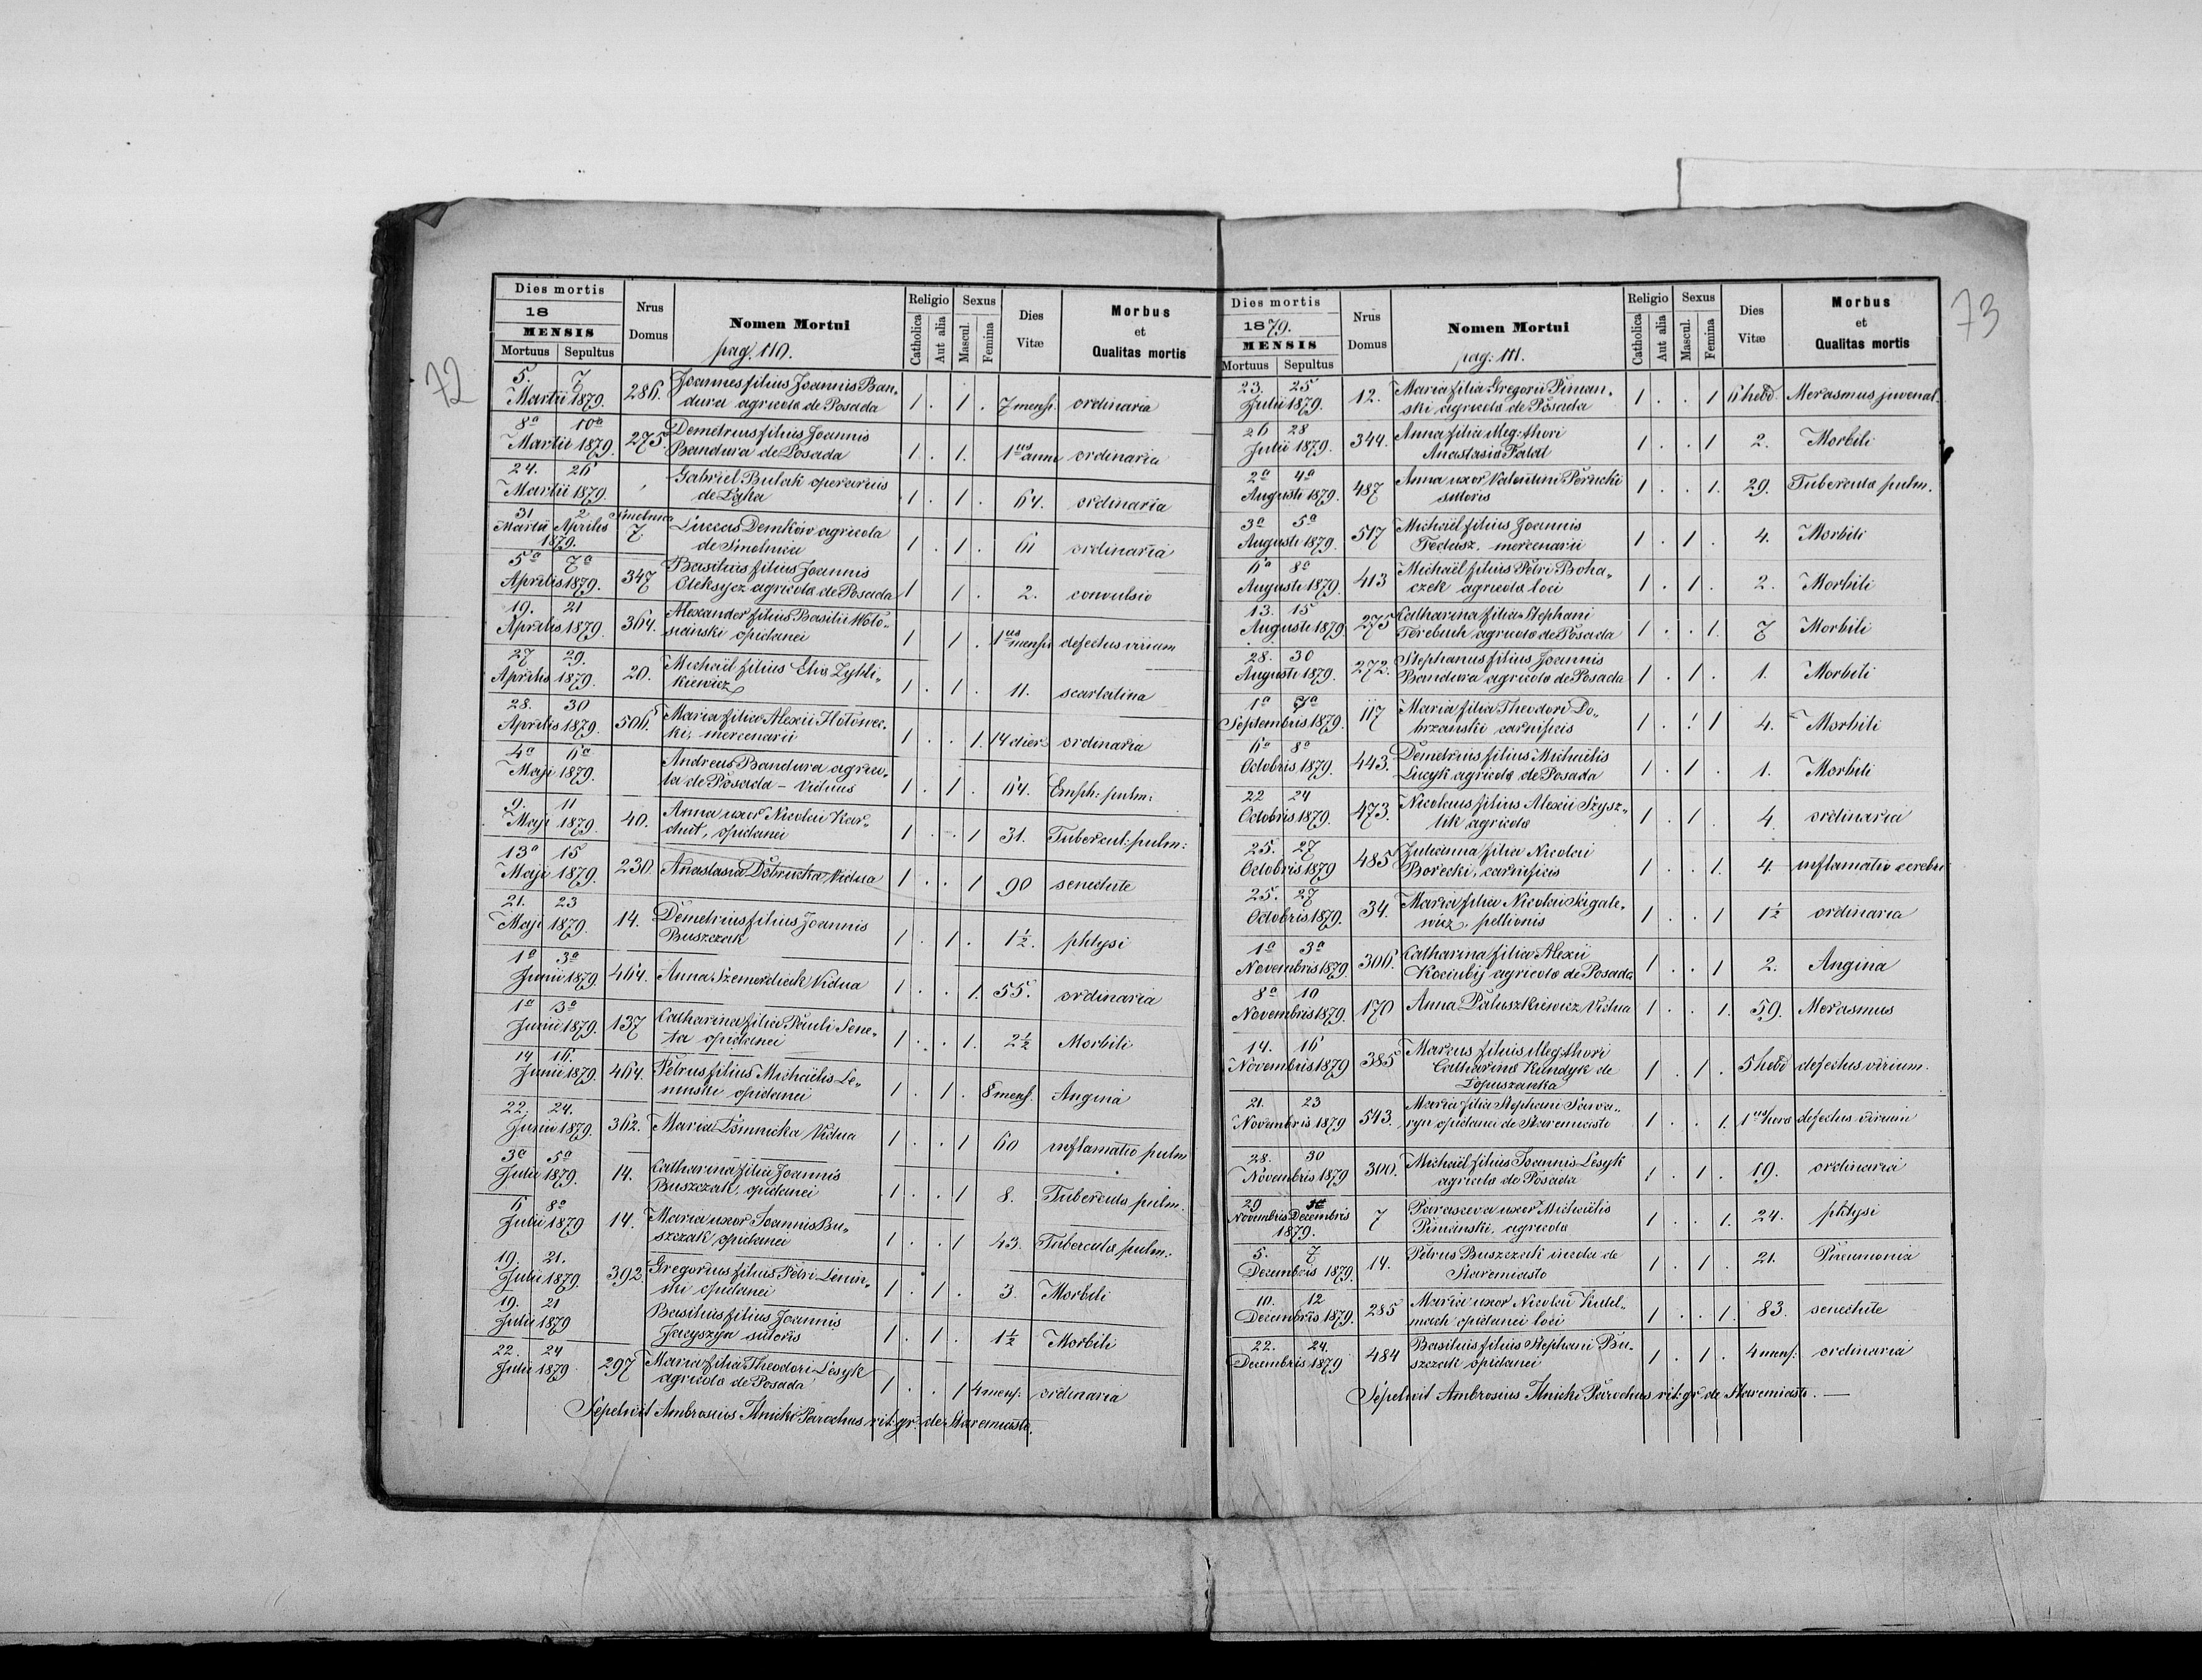 72
Dies mortis
18
MENSIS
Mortuus Sepultus
Nrus Domus
Nomen Mortui
pag. 110.
Religio
Catholica Aut alia
Sexus
Mascul. Femina
Dies Vitæ
Morbus et Qualitas mortis
5. 7 Martii 1879. 286. Joannes filius Joannis Ban-
dura agricola de Posada 1 . 1 . 7 mens. ordinaria
8a 10a Martii 1879. 275 Demetrius filius Joannis
Bandura de Posada 1 . 1. 1us anni ordinaria
24. 26 Martii 1879. Gabriel Bulak operarius
de Łąka 1 . 1 . 64. ordinaria
31 2 Martii Aprilis 1879. Smolnica 7. Luccas Demków agricola
de Smolnica 1 . 1 . 61 ordinaria
5a 7a Aprilis 1879. 347 Basilius filius Joannis
Oleksycz agricola de Posada 1 1 . 2. convulsio
19. 21 Aprilis 1879. 364. Alexander filius Basilii Woło-
siański opidanei 1 1 . 1us mensis defectus virium
27 29. Aprilis 1879. 20. Michaël filius Elia Zybli-
kiewicz 1 . 1 . 11. scarlatina
28. 30 Aprilis 1879. 506. Maria filia Alexii Hołowec-
ki, mercenarii 1 . . 1. 14 dier: ordinaria
4a 6a Maji 1879. Andreas Bandura agrico-
la de Posada - Viduus 1 . 1 . 64. Emph: pulm:
9. 11 Maji 1879. 40. Anna uxor Nicolai Kar-
dut, opidanei 1 . . 1 31. Tubercul: pulm:
13a 15 Maji 1879. 230. Anastasia Dobrucka, Vidua 1 . . 1 90 senectute
21. 23 Maji 1879. 14. Demetrius filius Joannis
Buszczak 1 . 1 . 1½. phtysi
1a 3a Junii 1879. 464. Anna Szemerdiak Vidua 1 . . 1. 55. ordinaria
1a 3a Junii 1879. 137 Catharina filia Pauli Sene-
ta opidanei 1 . . 1. 2½ Morbili
14 16. Junii 1879. 464. Petrus filius Michaëlis Le-
ninski opidanei 1 . 1 . 8 mens. Angina
22. 24. Junii 1879. 362. Maria Vidua 1 . . 1 60 inflamatio pulm
3a 5a Julii 1879. 14. Catharina filia Joannis
Buszczak, opidanei 1 . . 1 8. Tubercula pulm.
6 8a Julii 1879 14. Maria uxor Joannis Bu-
szczak opidanei 1 . . 1 43. Tubercula pulm.:
19. 21. Julii 1879. 392. Gregorius filius Petri Lenin-
ski opidanei 1 . 1 . 3. Morbili
19. 21 Julii 1879 Basilius filius Joannis
Jacyszyn sutoris 1 . 1 . 1½ Morbili
22. 24 Julii 1879 297 Maria filia Theodori Lesyk
agricola de Posada 1 . . 1 4 mens: ordinaria
Sepelivit Ambrosius Ilnicki Parochus rit: gr: de Staremiasto.
73
Dies mortis
1879.
MENSIS
Mortuus Sepultus
Nrus Domus
Nomen Mortui
pag: 111.
Religio
Catholica Aut alia
Sexus
Mascul. Femina
Dies Vitæ
Morbus et Qualitas mortis
23. 25 Julii 1879. 12. Maria filia Gregorii Pinian-
ski agricola de Posada 1 . . 1 6 hebd. Merasmus juvenal.
26 28 Julii 1879. 344. Anna filia illeg: thori
Anastasia Falat 1 . . 1 2. Morbili
2a 4a Augusti 1879. 487 Anna uxor Valentini Perucki
sutoris 1 . . 1. 29. Tubercula pulm.
3a 5a Augusti 1879. 517 Michaël filius Joannis
Fedasz, mercenarii 1 . 1 . 4. Morbili
6a 8a Augusti 1879. 413 Michaël filius Petri Boha-
czek agricola loci 1 . 1 . 2. Morbili
13. 15 Augusti 1879 275 Catharina filia Stephani
Terebuch agricola de Posada 1 . . 1. 7 Morbili
28. 30 Augusti 1879. 272. Stephanus filius Joannis
Bandura agricola de Posada 1 . 1 . 1. Morbili
1a Septembris 1879. 117 Maria filia Theodori Do-
brzański carnificis 1 . 1 4. Morbili
6a 8a Octobris 1879. 443. Demetrius filius Michaëlis
Lucyk agricola de Posada 1 . 1 . 1. Morbili
22 24 Octobris 1879. 473. Nicolaus filius Alexii Szysz-
lik agricola 1 . 1 . 4 ordinaria
25. 27 Octobris 1879 485 Julianna filia Nicolai
Borecki, carnificis 1 . . 1. 4. inflamatio cerebri
25. 27 Octobris 1879. 34. Maria filia Nicolai Skigale-
wicz, pellionis 1 . . 1 1½ ordinaria
1a 3a Novembris 1879. 306. Catharina filia Alexii
Kociubij agricola de Posada 1 . . 1 2. Angina
8a 10 Novembris 1879. 170 Anna Paluszkiewicz Vidua 1 . . 1. 59. Merasmus
14. 16 Novembris 1879 385 Marcus filius illeg: thori
Catharina Kundyk de
Łopuszanka 1 . 1 . 5 hebd defectus virium.
21. 23 Novembris 1879 543. Maria filia Stephani Sawa-
ryn opidanei de Staremiasto 1 . . 1. 1us hora defectus virium
28. 30 Novembris 1879 300. Michaël filius Joannis Lesyk
agricola de Posada 1 . 1 . 19. ordinaria
29 1a Novembris Decembris 1879. 7 Parasceva uxor Michaëlis
Piniański, agricola 1 . . 1. 24. phtysi
5. 7 Decembris 1879. 14. Petrus Buszczak incola de
Staremiasto 1 . 1 . 21. Pneumonia
10. 12 Decembris 1879. 285 Maria uxor Nicolai Kulel-
mach opidanei loci 1 . . 1. 83. senectute
22. 24. Decembris 1879 484 Basilius filius Stephani Bu-
szczak opidanei 1 . 1 . 4 mens: ordinaria
Sepelivit Ambrosius Ilnicki Parochus rit: gr: de Staremiasto. —